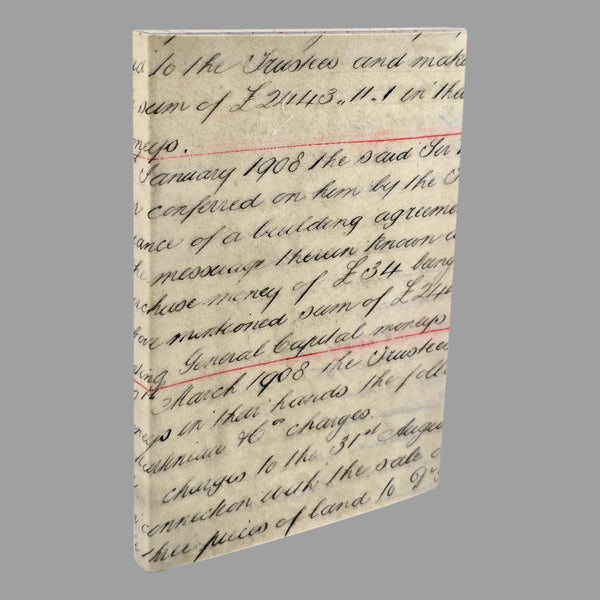 to the Trustees and make
sum of £2443,,11,,1 in the
neys.
January 1908 the said Sir
conferred on him by the
ance of a building agreeme
message therein known a
chase money of £34 being
ove mentioned sum of £244
ing General Capital moneys
March 1908 the Trustees
neys in their hands the foll
&cos charges.
charges to the 31st Augu
connection with the sale o
three pieces of land to